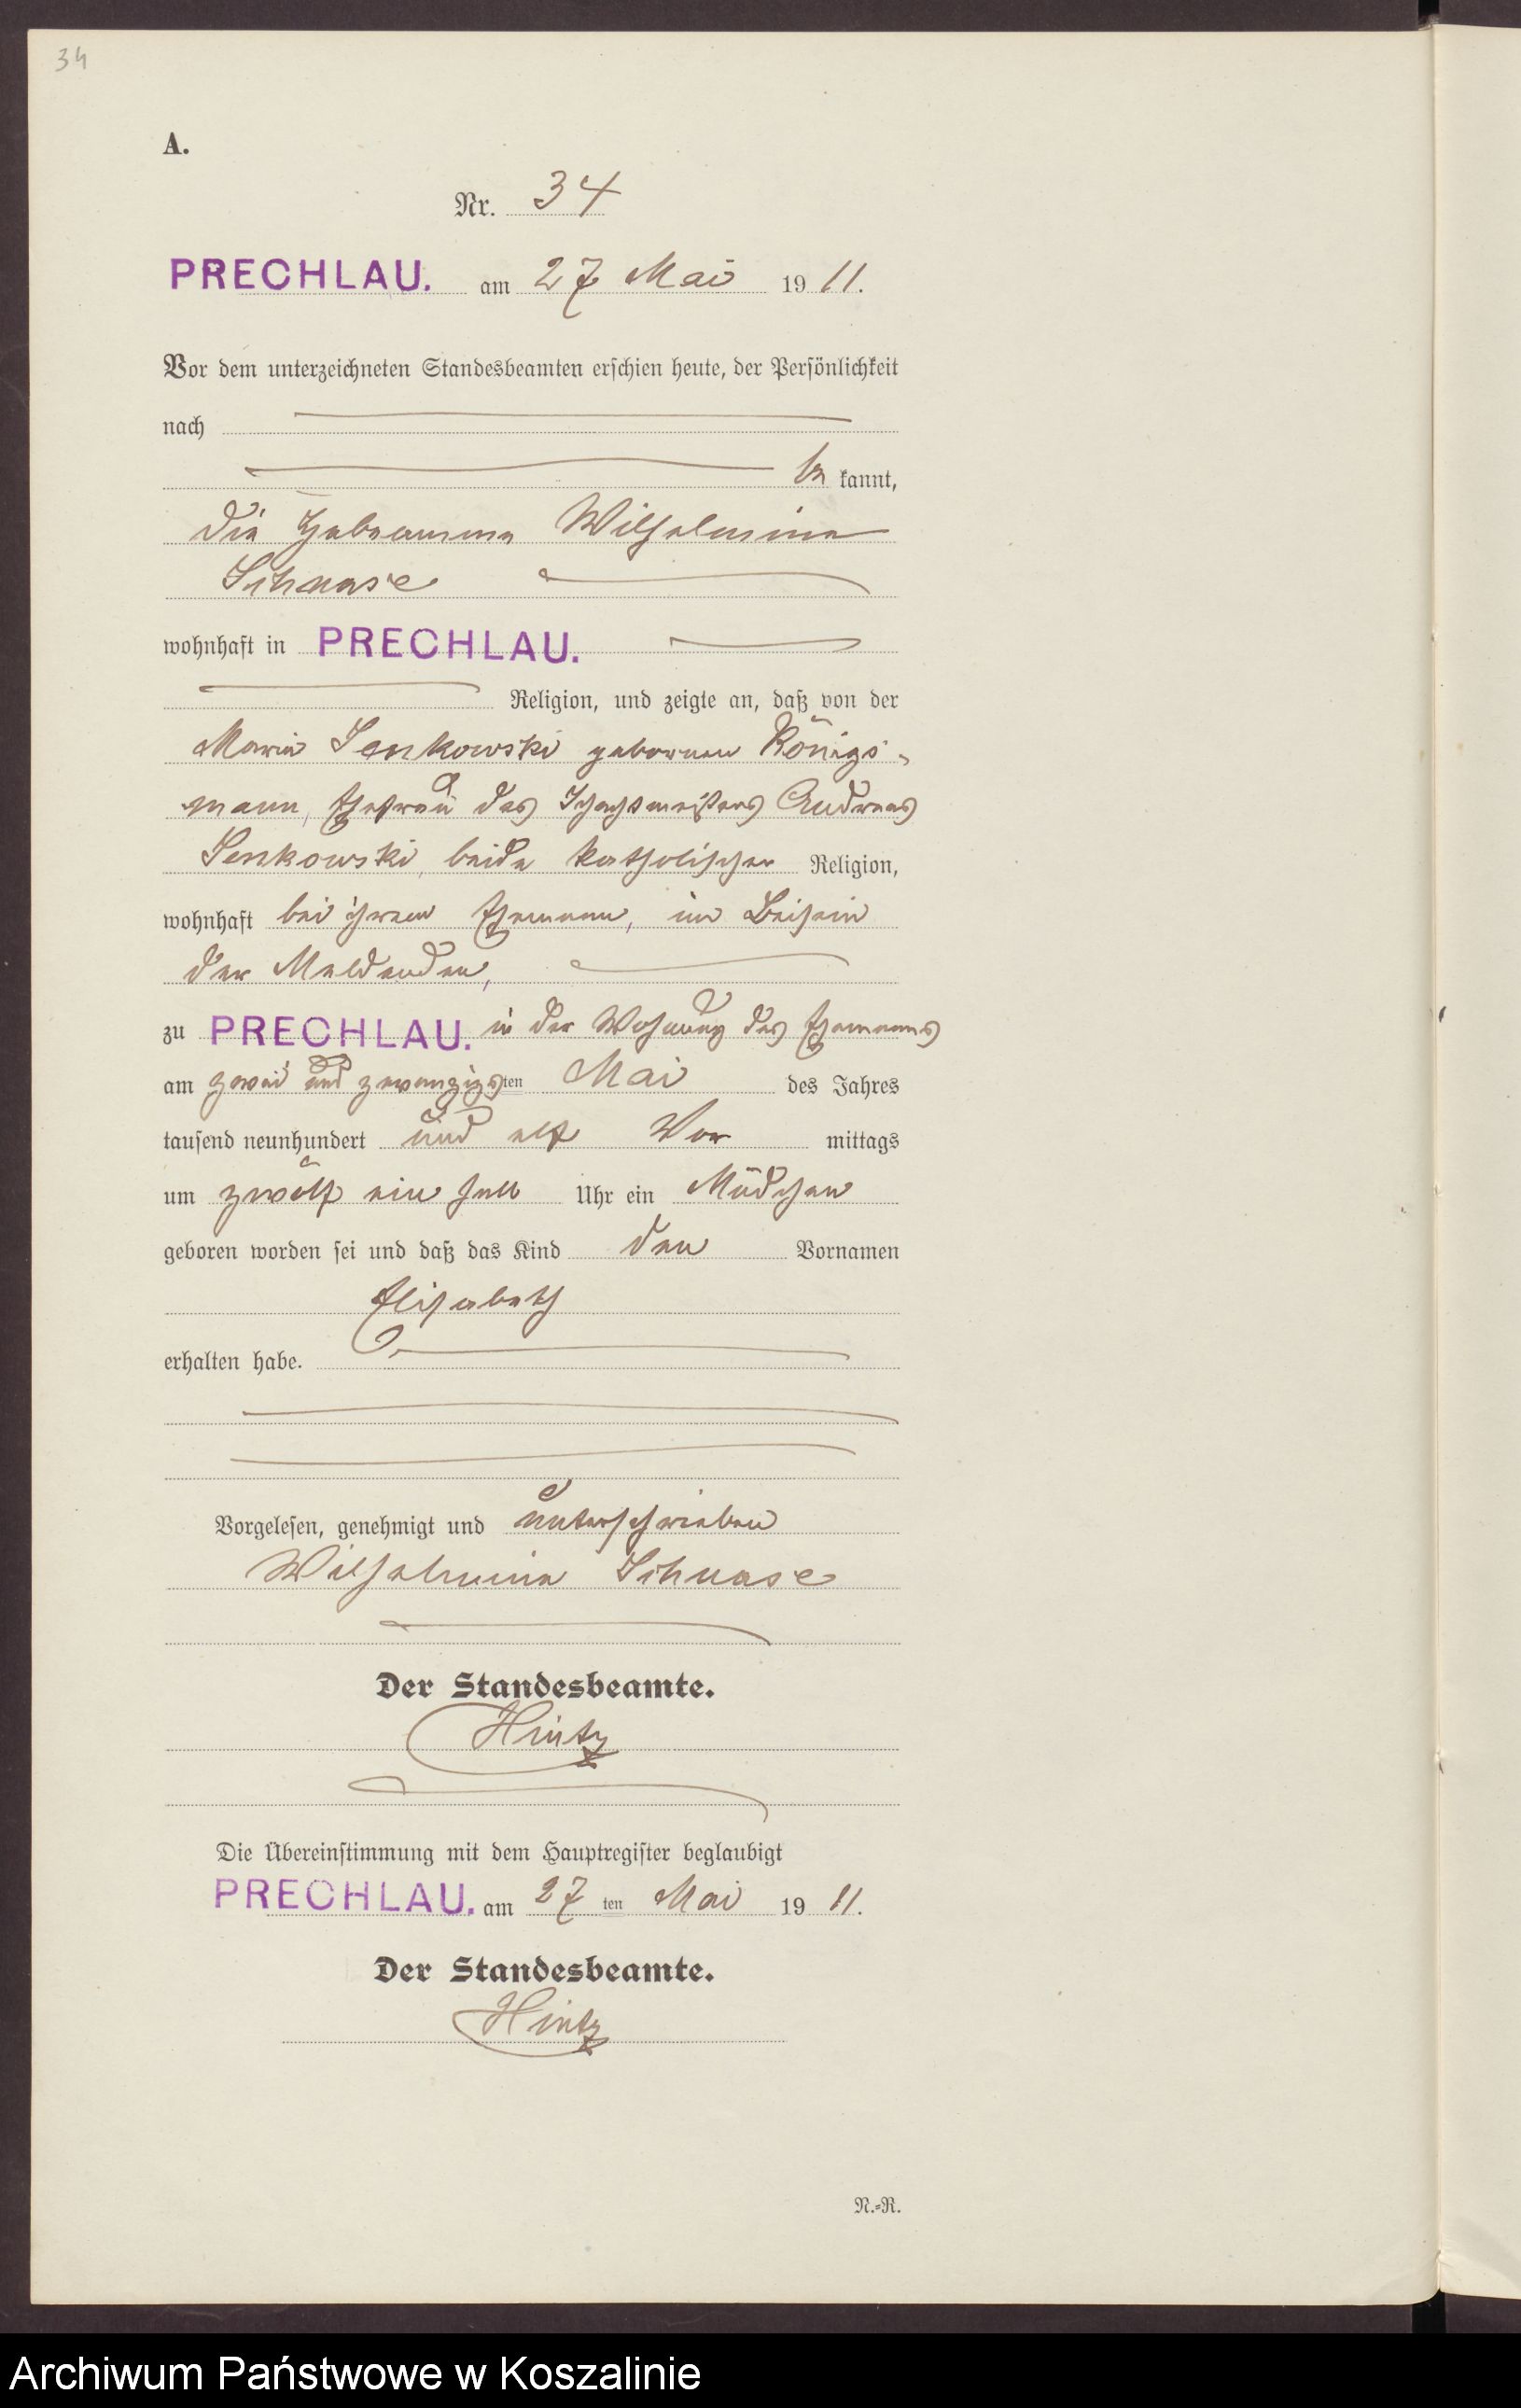 34
A.
Nr. 34
PRECHLAU. am 27 Mai 1911.
Vor dem unterzeichneten Standesbeamten erschien heute, der Persönlichkeit
nach
be kannt,
die Hebeamme Wilhelmine
Schnase
wohnhaft in PRECHLAU.
Religion, und zeigte an, daß von der
Maria Senkowski geborenen Königs-
mann, Ehefrau des Schachtmeisters Andreas
Senkowski, beide katholischer Religion,
wohnhaft bei ihrem Ehemann, im Beisein
der Meldenden,
zu PRECHLAU. in der Wohnung des Ehemanns
am zwei und zwanzigsten Mai des Jahres
tausend neunhundert und elf Vor mittags
um zwölf ein halb Uhr ein Mädchen
geboren worden sei und daß das Kind den Vornamen
Elisabeth
erhalten habe.
Vorgelesen, genehmigt und unterschrieben
Wilhelmine Schnase
Der Standesbeamte.
Hintz
Die Übereinstimmung mit dem Hauptregister beglaubigt
PRECHLAU. am 27 ten Mai 1911.
Der Standesbeamte.
Hintz
N.=R.
Archiwum Państwowe w Koszalinie